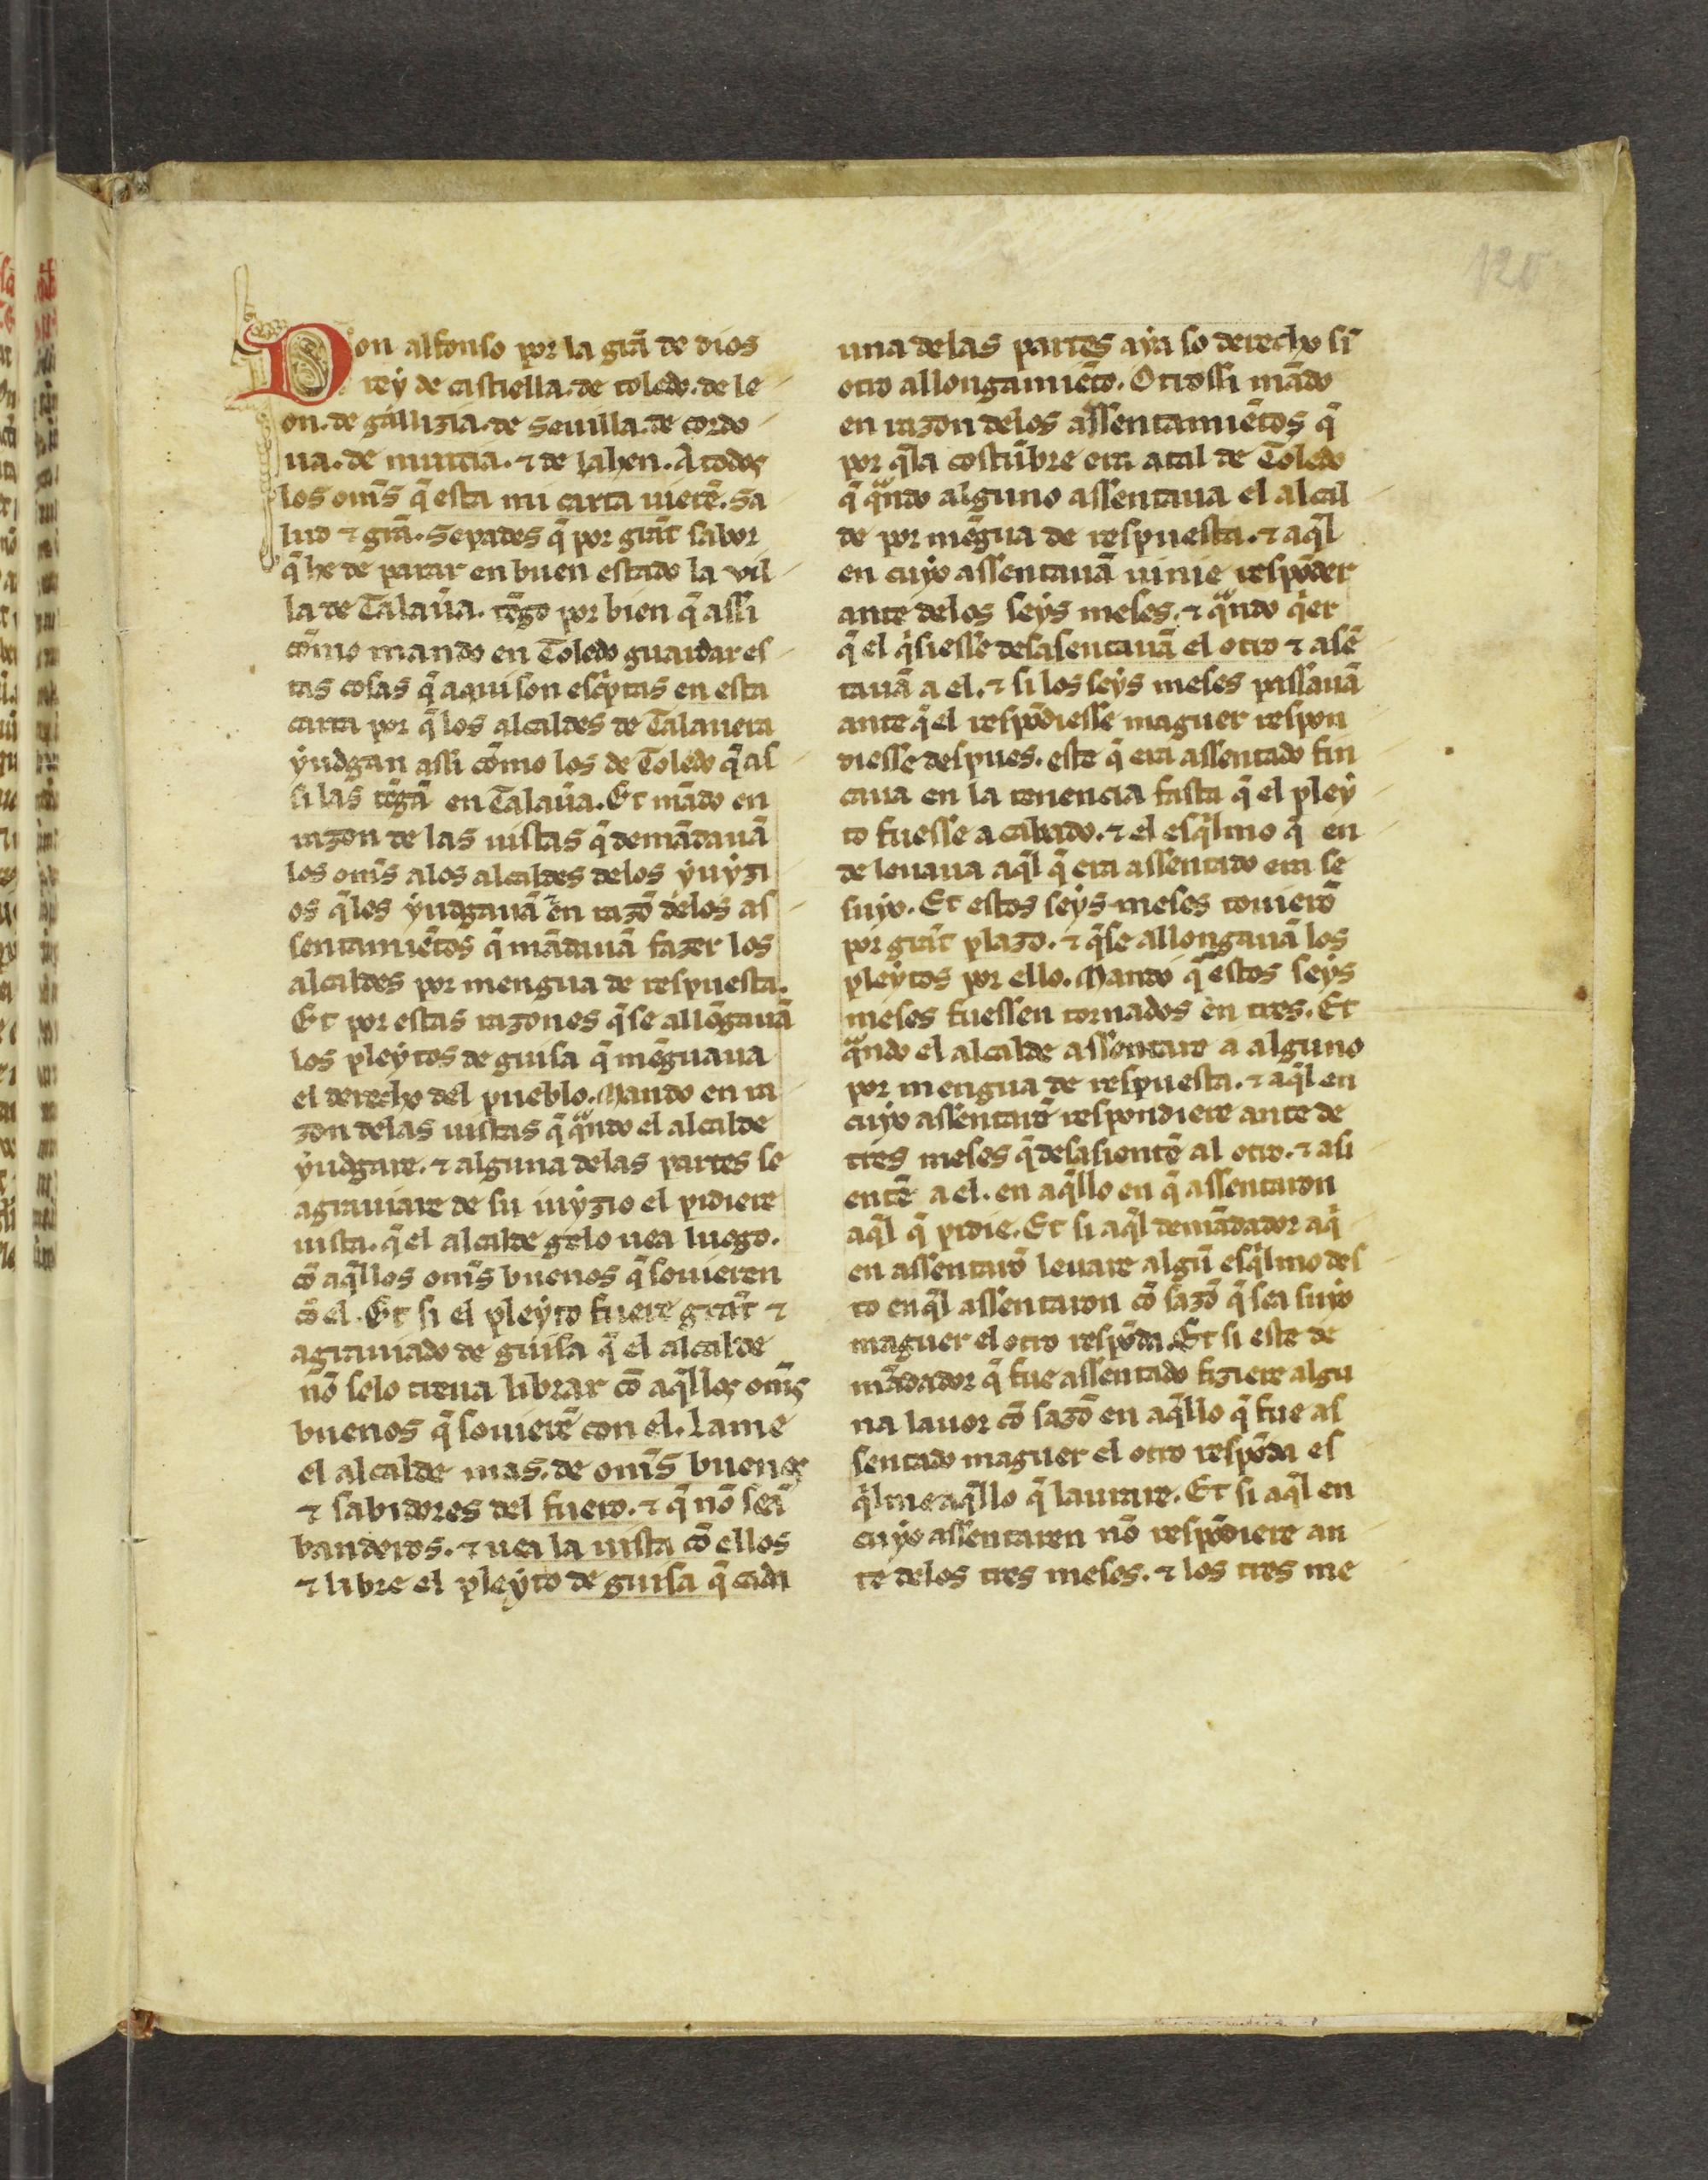 Don alfonso por la grã de dios
rey de castiella. de toledo. de le
on. de gallizia. de Seuilla. de cordo
ua. de murcia. ⁊ de Jahen. A todos
los om̃s q̃ esta mi carta uierẽ. Sa
lud ⁊ grã. Sepades q̃ por grãt sabor
q̃ he de parar en buen estado la vil
la de Talaũa. tẽgo por bien q̃ assi
cõmo mando en Toledo guardar es
tas cosas q̃ aqui son escͥptas en esta
carta por q̃ los alcaldes de Talauera
yudgan assi cõmo los de Toledo q̃ as
si las tẽgã en Talaũa. Et mãdo en
razon de las uistas q̃ demãdauã
los om̃s alos alcaldes delos yuyzi
os q̃ los yudgauã ⁊ en razõ delos as
sentamiẽtos q̃ mãdauã fazer los
alcaldes por mengua de respuesta.
Et por estas razones q̃ se allõgauã
los pleytos de guisa q̃ mẽguaua
el derecho del pueblo. Mando en ra
zon delas uistas q̃ qᵃndo el alcalde
yudgare. ⁊ alguna delas partes se
agrauiare de su iuyzio el pidiere
uista. q̃ el alcalde gelo uea luego.
cõ aq̃llos om̃s buenos q̃ souieren
cõ el. Et si el pleyto fuere grãt ⁊
agrauiado de guisa q̃ el alcalde
nõ selo treua librar cõ aq̃llos om̃s
buenos q̃ souierẽ con el. Lame
el alcalde mas. de om̃s buenos
⁊ sabidores del fuero. ⁊ q̃ nõ seã
vanderos. ⁊ uea la uista cõ ellos
⁊ libre el pleyto de guisa q̃ cada
una delas partes aya so derecho si
otro allongamiẽto. Otrossi mãdo
en razon delos assentamiẽtos q̃
por q̃ la costũbre era atal de Toledo
q̃ qᵃndo alguno assentaua el alcal
de por mẽgua de respuesta. ⁊ aq̃l
en cuyo assentauã uinie respõder
ante delos seys meses. ⁊ qᵃndo qͥer
q̃ el qͥsiesse desasentauã el otro ⁊ asẽ
tauã a el. ⁊ si los seys meses passauã
ante q̃ el respõdiesse maguer respon
diesse despues. este q̃ era assentado fin
caua en la tenencia fasta q̃ el pley
to fuesse acabado. ⁊ el esqͥlmo q̃ en
de leuaua aq̃l q̃ era assentado era se
suyo. Et estos seys meses touierõ
por grãt plazo. ⁊ q̃ se allongauã los
pleytos por ello. Mando q̃ estos seys
meses fuessen tornados en tres. Et
qᵃndo el alcalde assentare a alguno
por mengua de respuesta. ⁊ aq̃l en
cuyo assentarẽ respondiere ante de
tres meses q̃ desasientẽ al otro. ⁊ asi
entẽ a el. en aq̃llo en q̃ assentaron
aq̃l q̃ pidie. Et si aq̃l demãdador aqͥ
en assentarõ leuare algũ esqͥlmo des
to en q̃l assentaron cõ sazõ q̃ sea suyo
maguer el otro respõda. Et si este de
mãdador q̃ fue assentado fiziere algu
na lauor cõ sazõ en aq̃llo q̃ fue as
sentado maguer el otro respõda es
qͥlme aq̃llo q̃ laurare. Et si aq̃l en
cuyo assentaren nõ respõdiere an
te delos tres meses. ⁊ los tres me